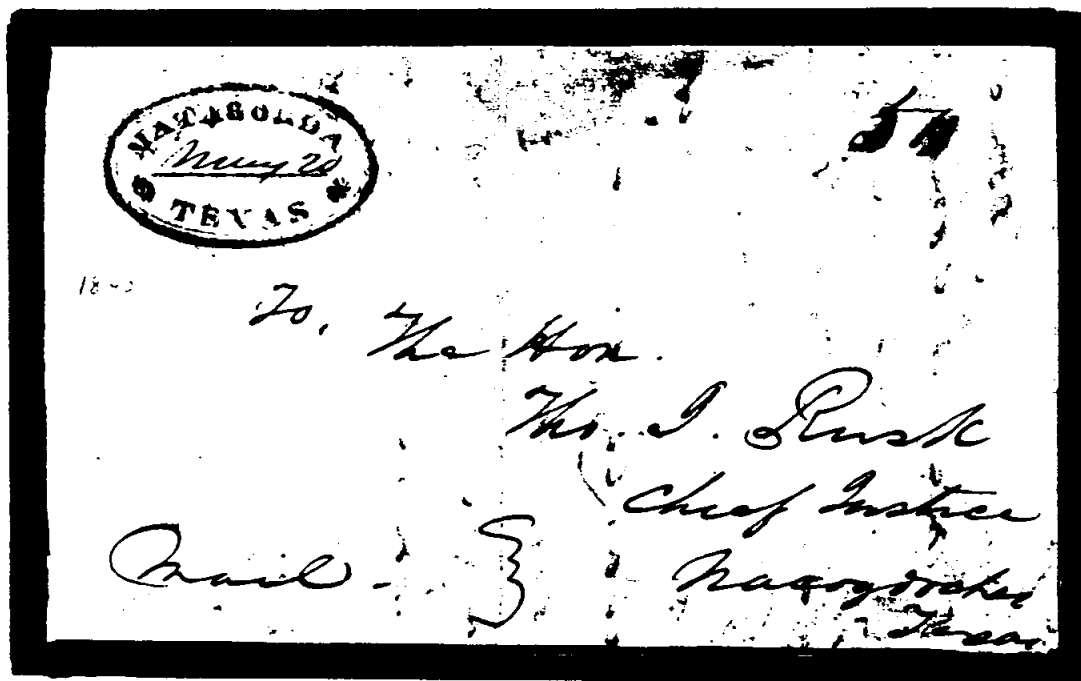 MATAGORDA
May 20
TEXAS
To,
The Hon.
Tho. J. Rusk
Chief Justice
Mail -
Nacogdoches
Texas